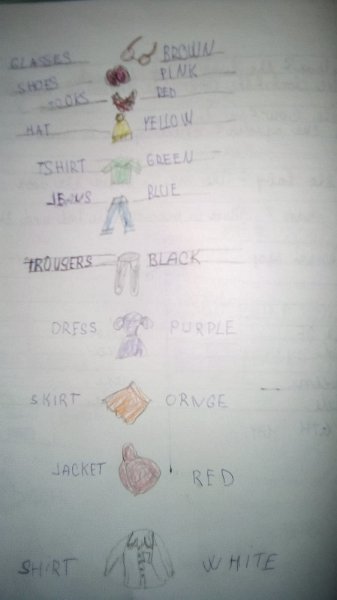 GLASSES BROWN
SHOES PINK
SOCKS RED
HAT YELLOW
TSHIRT GREEN
JEANS BLUE
TROUSERS BLACK
DRESS PURPLE
SKIRT ORNGE
JACKET RED
SHIRT WHITE